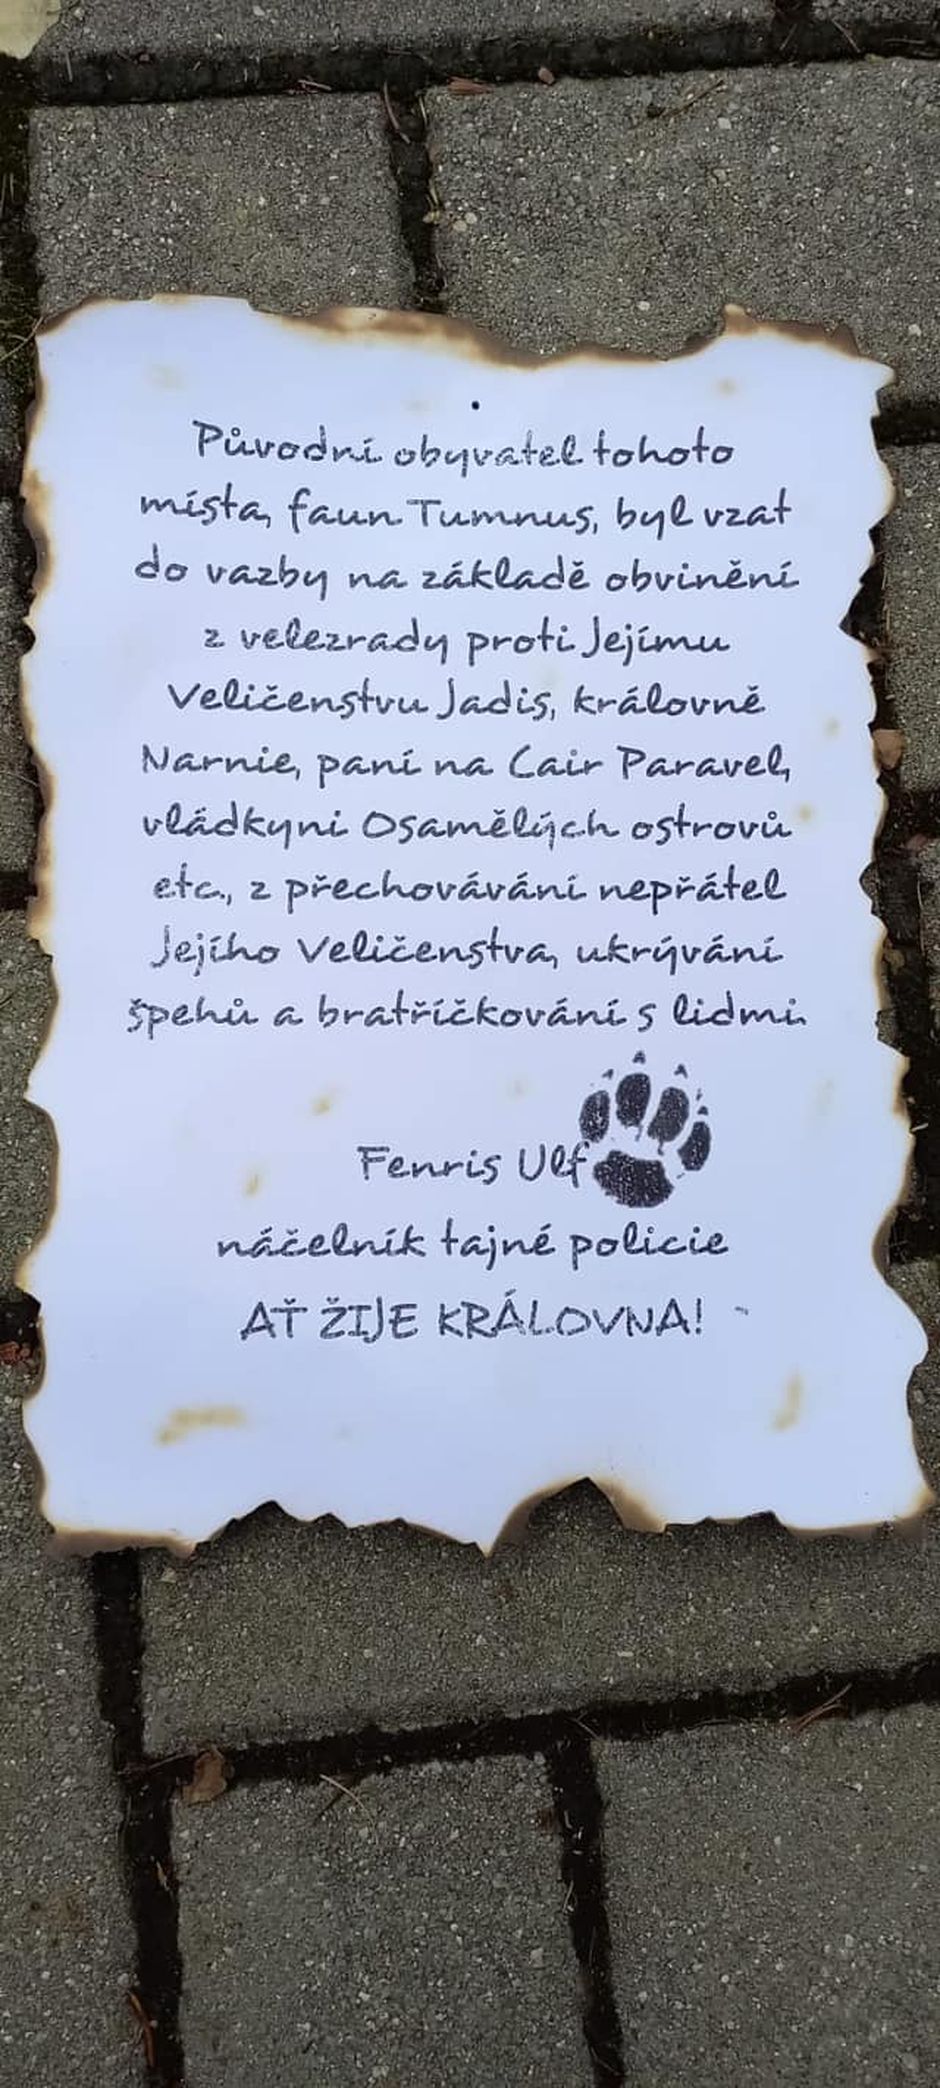 Původní obyvatel tohoto
místa, faun Tumnus, byl vzat
do vazby na základě obvinění
z velezrady proti Jejímu
Veličenstvu Jadis, královně
Narnie, paní na Cair Paravel,
vládkyni Osamělých ostrovů
etc., z přechovávání nepřátel
Jejího Veličenstva, ukrývání
špehů a bratříčkování s lidmi.
Fenris Ulf
náčelník tajné policie
AŤ ŽIJE KRÁLOVNA!